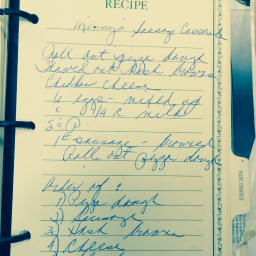 RECIPE
Missy's Sausage Casserole
Roll out pizza dough
Thawed out Hash browns
Chedder cheese
6 eggs - mixed up
c 1/4 c. milk
S & P
1# sausage - browned
Roll out Pizza dough
Order of :
1) Pizza dough
2) Sausage
3) Hash browns
4) Cheese